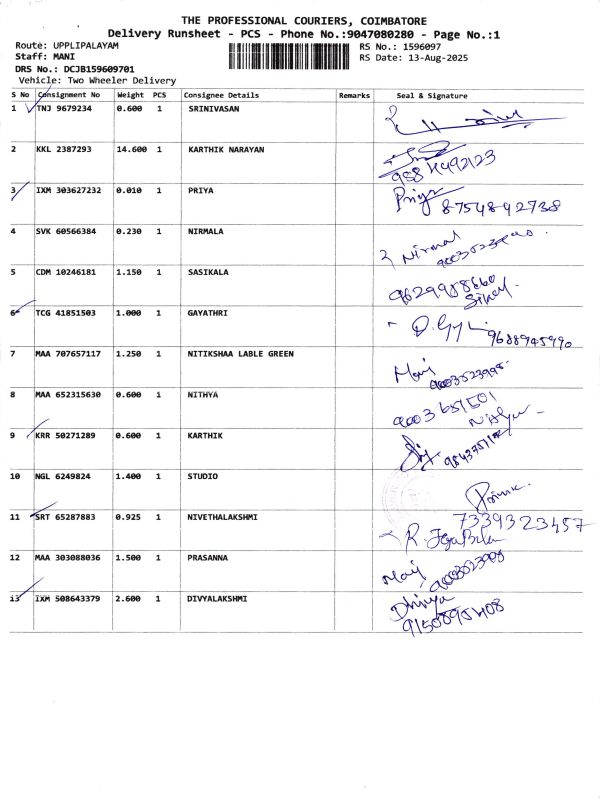 THE PROFESSIONAL COURIERS, COIMBATORE
Delivery Runsheet - PCS - Phone No.:9047080280 - Page No.:1
Route: UPPLIPALAYAM
RS No.: 1596097
Staff: MANI
RS Date: 13-Aug-2025
DRS No.: DCJB159609701
Vehicle: Two Wheeler Delivery
S No Consignment No Weight PCS Consignee Details Remarks Seal & Signature
1 TNJ 9679234 0.600 1 SRINIVASAN
2 KKL 2387293 14.600 1 KARTHIK NARAYAN
3 IXM 303627232 0.010 1 PRIYA Priya 8754842738
4 SVK 60566384 0.230 1 NIRMALA Nirmal
5 CDM 10246181 1.150 1 SASIKALA 9629958660
6 TCG 41851503 1.000 1 GAYATHRI 9688945990
7 MAA 707657117 1.250 1 NITIKSHAA LABLE GREEN Mani
8 MAA 652315630 0.600 1 NITHYA Nithya
9 KRR 50271289 0.600 1 KARTHIK
10 NGL 6249824 1.400 1 STUDIO
11 SRT 65287883 0.925 1 NIVETHALAKSHMI 7339323457
12 MAA 303088036 1.500 1 PRASANNA Mani
13 IXM 508643379 2.600 1 DIVYALAKSHMI Dhivya